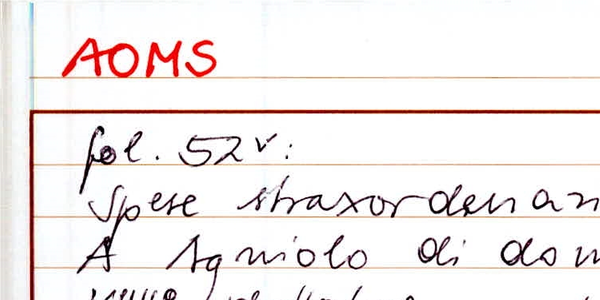 AOMS
fol. 52v:
Spese straxordenar
A Agniolo di dom